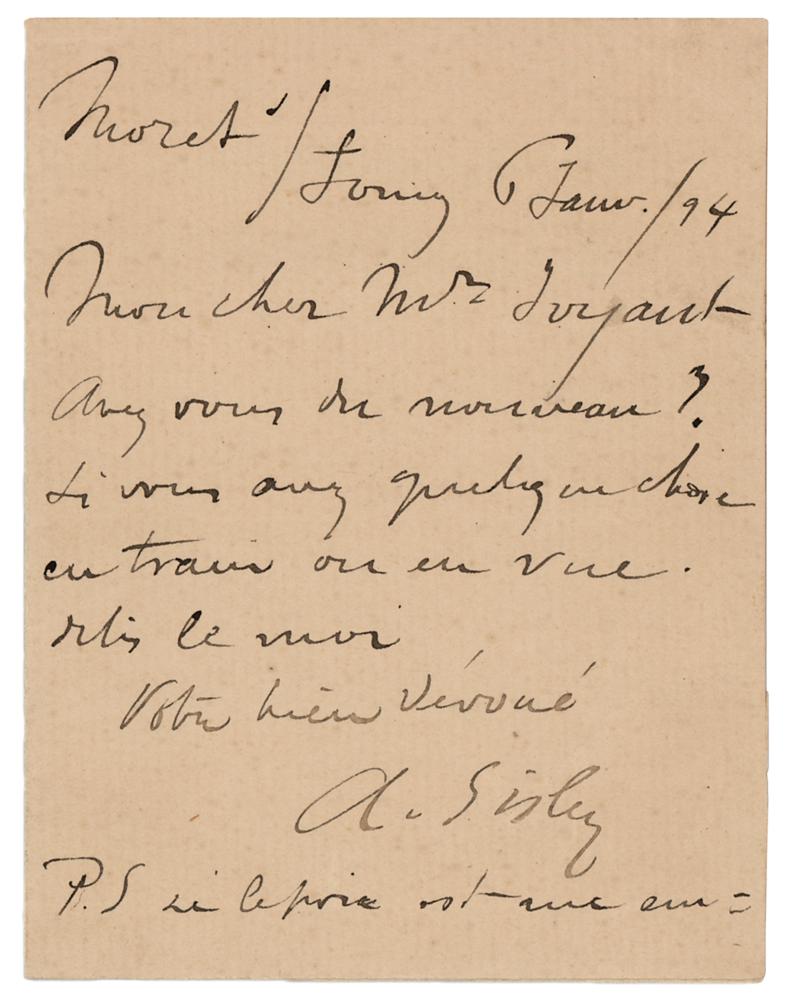 Moret s/ Loing 6 Janv. /94
Mon cher Mr Joyant
Avez vous du nouveau ?
Si vous avez quelque chose
en train ou en vue.
dites le moi
Votre bien dévoué
A. Sisley
P.S si le prix est une em=